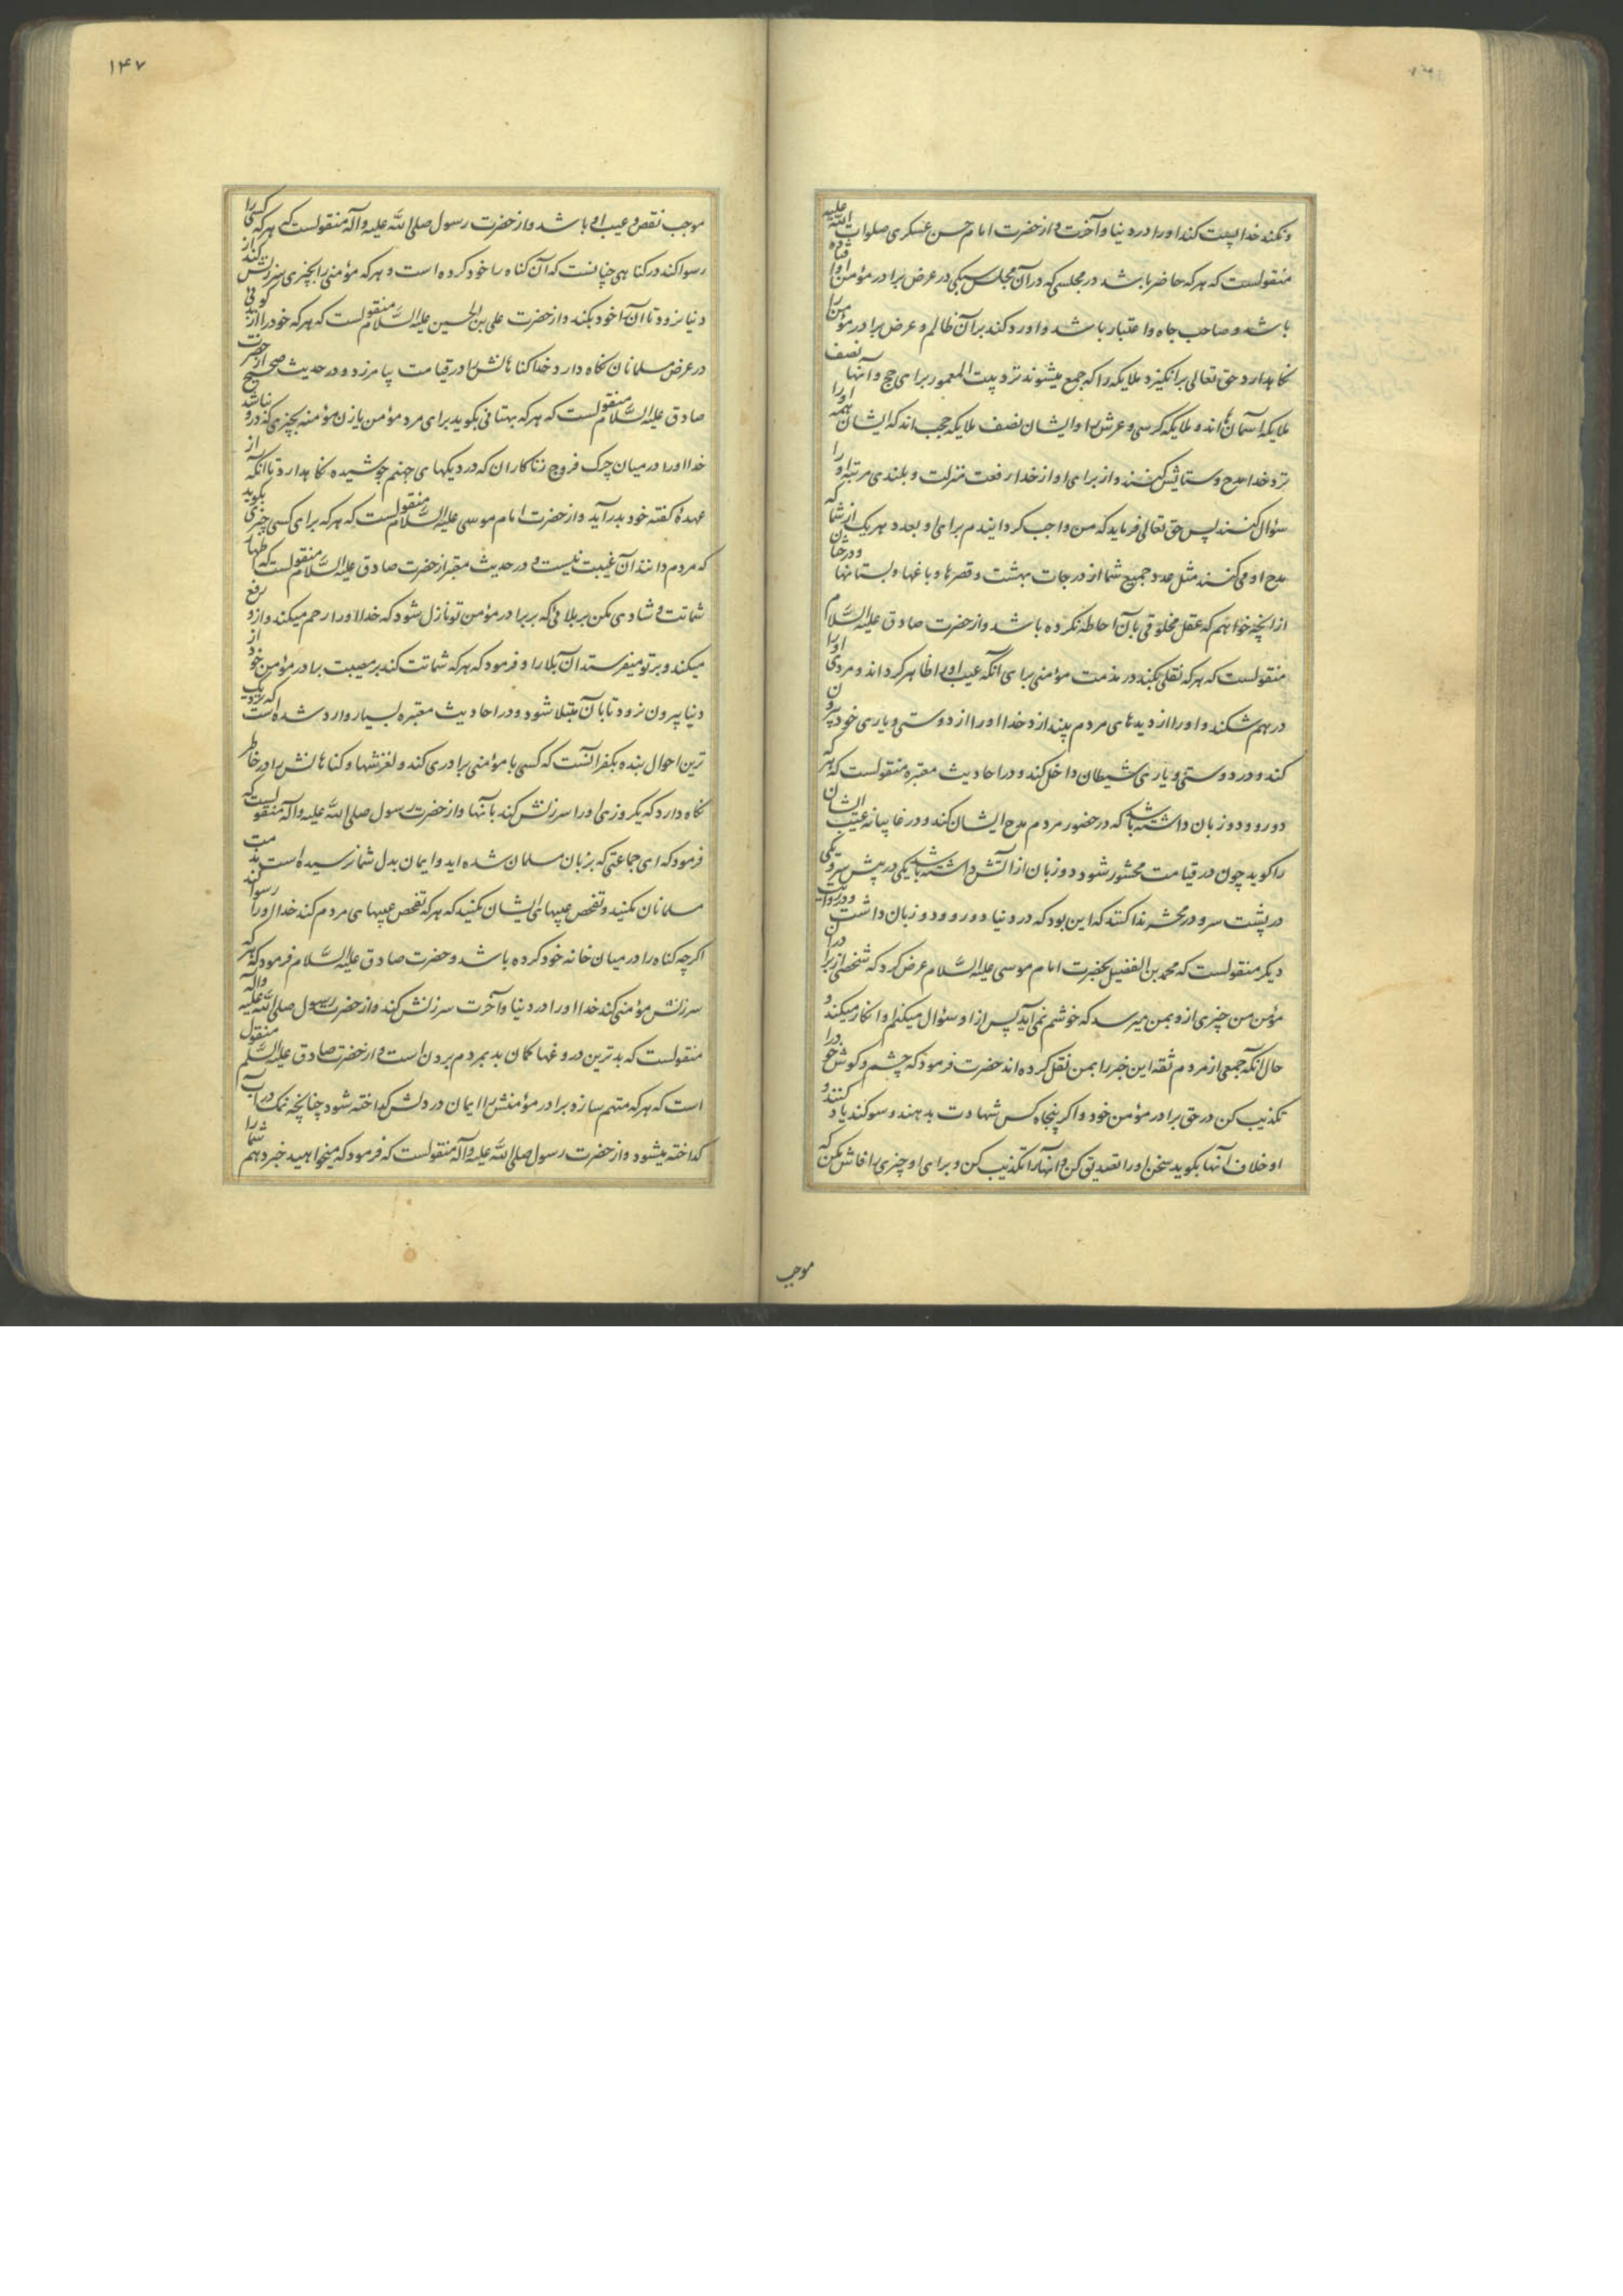 و نکند خدا پست کند او را در دنیا و آخرت و از حضرت امام حسن عسکری صلوات الله علیه
منقولست که هر که حاضر باشد در مجلسی که در آن مجلس سکی در عرض برادر مؤمن او افتاده
باشد و صاحب جاه و اعتبار باشد و او رد کند بر آن ظالم و عرض برادر مؤمن را
نکاهدارد حق تعالی برانکیزد ملایکه را که جمع میشوند نزد بیت المعمور برای حج و آنها نصف
ملایکه آسمان‌ها اند و ملایکه کرسی و عرش را و ایشان نصف ملایکه حجب اند که ایشان همه او را
نزد خدا مدح و ستایش کنند و از برای او از خدا رفعت منزلت و بلندی مرتبه او را
سؤال کنند پس حق تعالی فرماید که من واجب کردانیدم برای او بعدد هر یک از شما که
مدح او می کنند مثل عدد جمیع شما از درجات بهشت و قصرها و باغها و بستانها و درختان
از آنچه خواهم که عقل مخلوقی بآن احاطه نکرده باشد و از حضرت صادق علیه السلام
منقولست که هر که نقلی بکند در مذمت مؤمنی برای آنکه عیب او را ظاهر کرداند و مردی او را
در هم شکند و او را از دیدهای مردم بیندازد خدا او را از دوستی و یاری خود بیرون
کند و در دوستی و یاری شیطان داخل کند و در احادیث معتبره منقولست که هر که
دو رو و دو زبان داشته باشد که در حضور مردم مدح ایشان کند و در غایبانه غیبت ایشان
را کوید چون در قیامت محشور شود دو زبان از آتش داشته باشد یکی در پیش سر و یکی
در پشت سر و در محشر ندا کنند که این بود که در دنیا دو رو و دو زبان داشت و در روایت
دیکر منقولست که محمد بن الفضیل بحضرت امام موسی علیه السلام عرض کرد که شخصی از برادران
مؤمن من چیزی از و بمن میرسد که خوشم نمی آید پس از او سؤال میکنم او انکار میکند و
حال آنکه جمعی از مردم ثقه این خبر را بمن نقل کرده اند حضرت فرمود که چشم و کوش خود را
تکذیب کن در حق برادر مؤمن خود و اکر پنجاه کس شهادت بدهند و سوکند یاد کنند و
او خلاف آنها بکوید سخن او را تصدیق کن و آنها را تکذیب کن و برای او چیزی را فاش مکن که
موجب
۱۴۷
موجب نقص و عیب او باشد و از حضرت رسول صلی الله علیه و آله منقولست که هر که کسی را
رسوا کند در کناهی چنانست که آن کناه را خود کرده است و هر که مؤمنی را بچیزی سرزنش کند از
دنیا نرود تا آن را خود بکند و از حضرت علی بن الحسین علیه السلام منقولست که هر که خود را از بد کوئی
در عرض مسلمانان نکاه دارد خدا کناهانش را در قیامت بیامرزد و در حدیث صحیح از حضرت
صادق علیه السلام منقولست که هر که بهتانی بکوید برای مرد مؤمن یا زن مؤمنه بچیزی که در او نباشد
خدا او را در میان چرک فروج زناکاران که در دیکهای جهنم جوشیده نکاهدارد تا آنکه از
عهدهٔ کفته خود بدر آید و از حضرت امام موسی علیه السلام منقولست که هر که برای کسی چیزی بکوید
که مردم دانند آن غیبت نیست و در حدیث معتبر از حضرت صادق علیه السلام منقولست که اظهار
شماتت و شادی مکن بر بلائی که بر برادر مؤمن تو نازل شود که خدا او را رحم میکند و از او رفع
میکند و بر تو میفرستد آن بلا را و فرمود که هر که شماتت کند بر مصیبت برادر مؤمن خود از
دنیا بیرون نرود تا بآن مبتلا شود و در احادیث معتبره بسیار وارد شده است که نزدیک
ترین احوال بنده بکفر آنست که کسی با مؤمنی برادری کند و لغزشها و کناهانش را در خاطر
نکاه دارد که یکروزی او را سرزنش کند بآنها و از حضرت رسول صلی الله علیه و آله منقولست که
فرمود که ای جماعتی که بزبان مسلمان شده اید و ایمان بدل شما نرسیده است مذمت
مسلمانان مکنید و تفحص عیبهای ایشان مکنید که هر که تفحص عیبهای مردم کند خدا او را رسوا کند
اکرچه کناه را در میان خانه خود کرده باشد و حضرت صادق علیه السلام فرمود که هر که
سرزنش مؤمنی کند خدا او را در دنیا و آخرت سرزنش کند و از حضرت رسول صلی الله علیه و آله
منقولست که بدترین دروغها کمان بد بمردم بردن است و از حضرت صادق علیه السلم منقول
است که هر که متهم سازد برادر مؤمنش را ایمان در دلش کداخته شود چنانچه نمک در آب
کداخته میشود و از حضرت رسول صلی الله علیه و آله منقولست که فرمود که میخواهید خبر دهم شما را